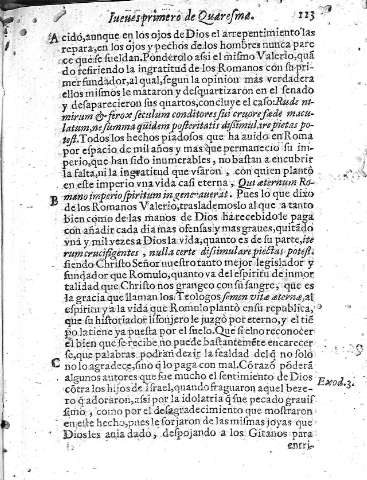 Iueues primero de Quaresma.
113
A cido, aunque en los ojos de Dios el arrepentimiento las
repara, en los ojos y pechos de los hombres nunca pare
ce que se sueldan. Ponderolo assi el mismo Valerio, quã
do refiriendo la ingratitud de los Romanos con su pri-
mer fundador, al qual, segun la opinion mas verdadera
ellos mismos le mataron y desquartizaron en el senado
y desaparecieron sus quartos, concluye el caso: Rude ni-
mirum & ferox seculum conditores sui cruore fœde macu-
latum, ne summa quidem posteritatis dissimulare pietas po-
test. Todos los hechos piadosos que ha auido en Roma
por espacio de mil años y mas que permanecio su im-
perio, que han sido inumerables, no bastan a encubrir
la falta, ni la ingratitud que vsaron, con quien planto
en este imperio vna vida casi eterna, Qui æternum Ro-
B mano imperio spiritum ingenerauerat. Pues lo que dixo
de los Romanos Valerio, traslademoslo al que a tanto
bien como de las manos de Dios ha recebido le paga
con añadir cada dia mas ofensas y mas graues, quitãdo
vna y mil vezes a Dios la vida, quanto es de su parte, ite
rum crucifigentes, nulla certe dissimulare pietas potest:
siendo Christo Señor nuestro tanto mejor legislador y
fundador que Romulo, quanto va del espiritu de inmor
talidad que Christo nos grangeo con su sangre, que es
la gracia que llaman los Teologos semen vitæ æternæ, al
espiritu y a la vida que Romulo planto en su republica,
que su historiador lisonjero le juzgò por eterno, y el tiẽ
po la tiene ya puesta por el suelo. Que si el no reconocer
el bien que se recibe no puede bastantemẽte encarecer
se, que palabras podran dezir la fealdad del q̃ no solo
C no lo agradece, sino q̃ lo paga con mal. Coraçõ põderã
algunos autores que fue mucho el sentimiento de Dios
cõtra los hijos de Israel, quando fraguaron aquel beze-
rro q̃ adoraron, assi por la idolatria q̃ fue pecado grauis
simo, como por el desagradecimiento que mostraron
en este hecho, pues le forjaron de las mismas joyas que
Dios les auia dado, despojando a los Gitanos para
Exod. 3.
enri-